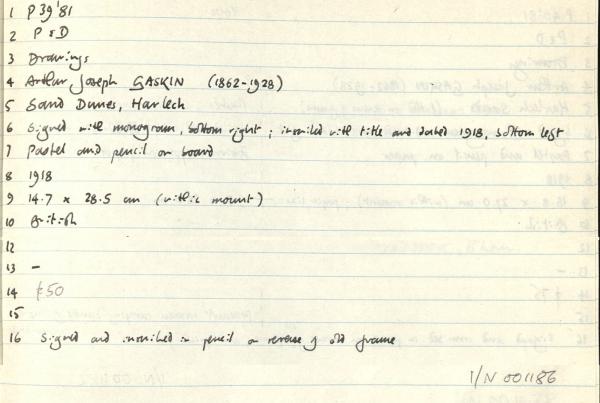 1 P39'81
2 P & D
3 Drawings
4 Arthur Joseph GASKIN (1862-1928)
5 Sand Dunes, Harlech
6 Signed with monogram, bottom right; inscribed with title and dated 1918, bottom left
7 Pastel and pencil on board
8 1918
9 14.7 x 28.5 cm (within mount)
10 British
12
13 -
14 £50
15
16 Signed and inscribed in pencil on reverse of old frame
I/N 001186